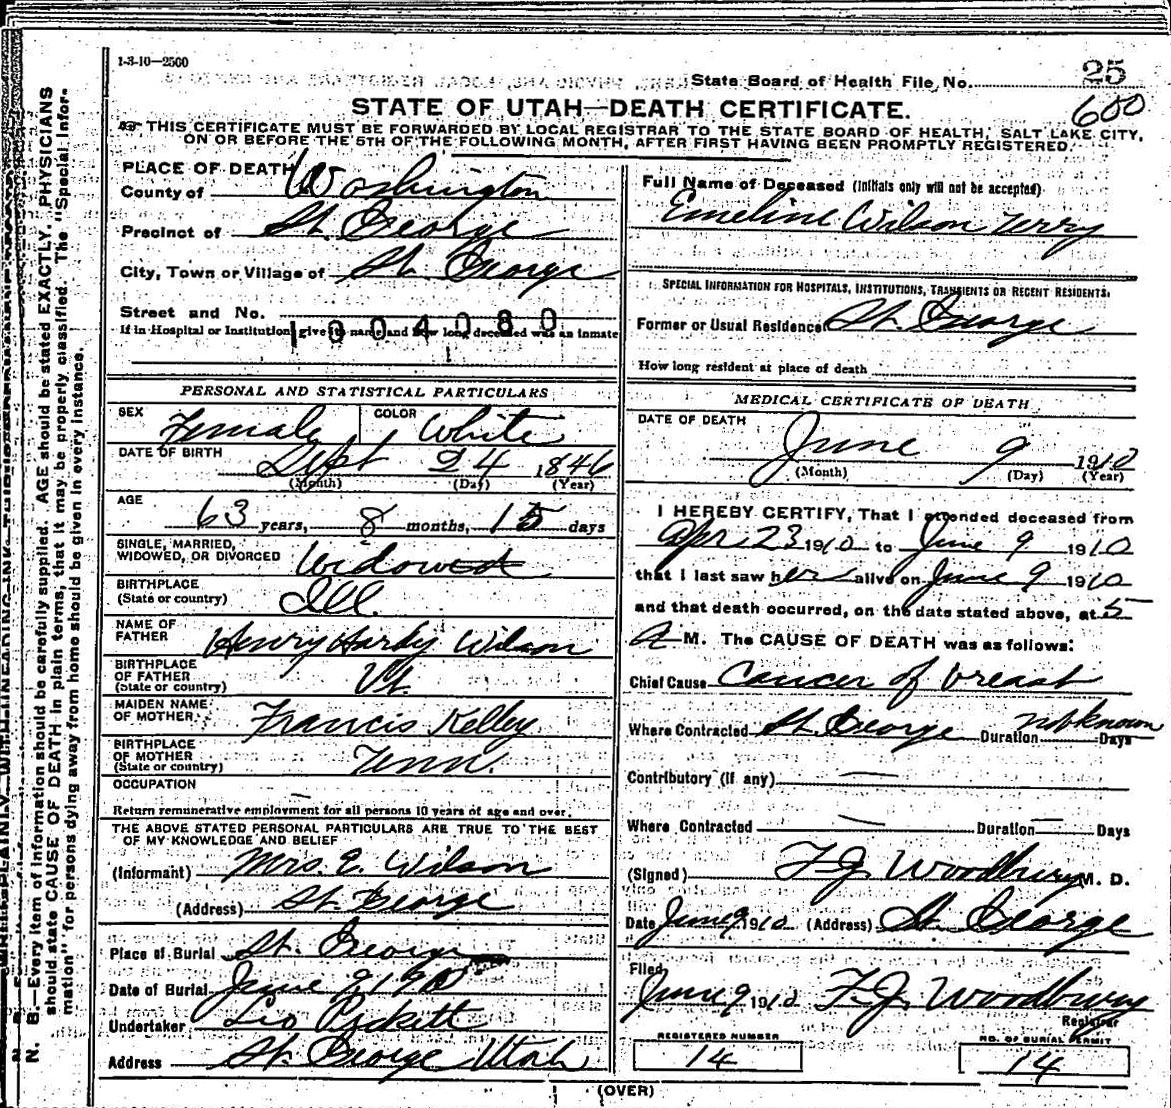 1-3-10—2500
State Board of Health File No. 25
600
STATE OF UTAH—DEATH CERTIFICATE.
THIS CERTIFICATE MUST BE FORWARDED BY LOCAL REGISTRAR TO THE STATE BOARD OF HEALTH, SALT LAKE CITY,
ON OR BEFORE THE 5TH OF THE FOLLOWING MONTH, AFTER FIRST HAVING BEEN PROMPTLY REGISTERED.
N. B.—Every item of information should be carefully supplied. AGE should be stated EXACTLY. PHYSICIANS
should state CAUSE OF DEATH in plain terms, that it may be properly classified. The "Special Infor-
mation" for persons dying away from home should be given in every instance.
PLACE OF DEATH
County of Washington
Precinct of St. George
City, Town or Village of St. George
Street and No.
If in Hospital or Institution give its name and how long deceased was an inmate
1004080
PERSONAL AND STATISTICAL PARTICULARS
SEX Female COLOR White
DATE OF BIRTH Sept 24 1846
(Month) (Day) (Year)
AGE 63 years, 8 months, 15 days
SINGLE, MARRIED,
WIDOWED, OR DIVORCED Widowed
BIRTHPLACE
(State or country) Ill.
NAME OF
FATHER Henry Hardy Wilson
BIRTHPLACE
OF FATHER
(State or country) Vt.
MAIDEN NAME
OF MOTHER Francis Kelley
BIRTHPLACE
OF MOTHER
(State or country) Tenn.
OCCUPATION —
Return remunerative employment for all persons 10 years of age and over.
THE ABOVE STATED PERSONAL PARTICULARS ARE TRUE TO THE BEST
OF MY KNOWLEDGE AND BELIEF
(Informant) Mrs. E. Wilson
(Address) St. George
Place of Burial St. George
Date of Burial June 9, 1910
Undertaker Leo Pickett
Address St. George Utah
Full Name of Deceased (Initials only will not be accepted)
Emeline Wilson Terry
SPECIAL INFORMATION FOR HOSPITALS, INSTITUTIONS, TRANSIENTS OR RECENT RESIDENTS.
Former or Usual Residence St. George
How long resident at place of death
MEDICAL CERTIFICATE OF DEATH
DATE OF DEATH
June 9 1910
(Month) (Day) (Year)
I HEREBY CERTIFY, That I attended deceased from
Apr 23 1910 to June 9 1910
that I last saw her alive on June 9 1910
and that death occurred, on the date stated above, at 5
A M. The CAUSE OF DEATH was as follows:
Chief Cause Cancer of breast
Where Contracted St. George Duration not known Days
Contributory (if any) —
Where Contracted — Duration — Days
(Signed) F.J. Woodbury M. D.
Date June 9 1910 (Address) St. George
Filed
June 9 1910 F.J. Woodbury
Registrar
REGISTERED NUMBER
14
NO. OF BURIAL PERMIT
14
(OVER)